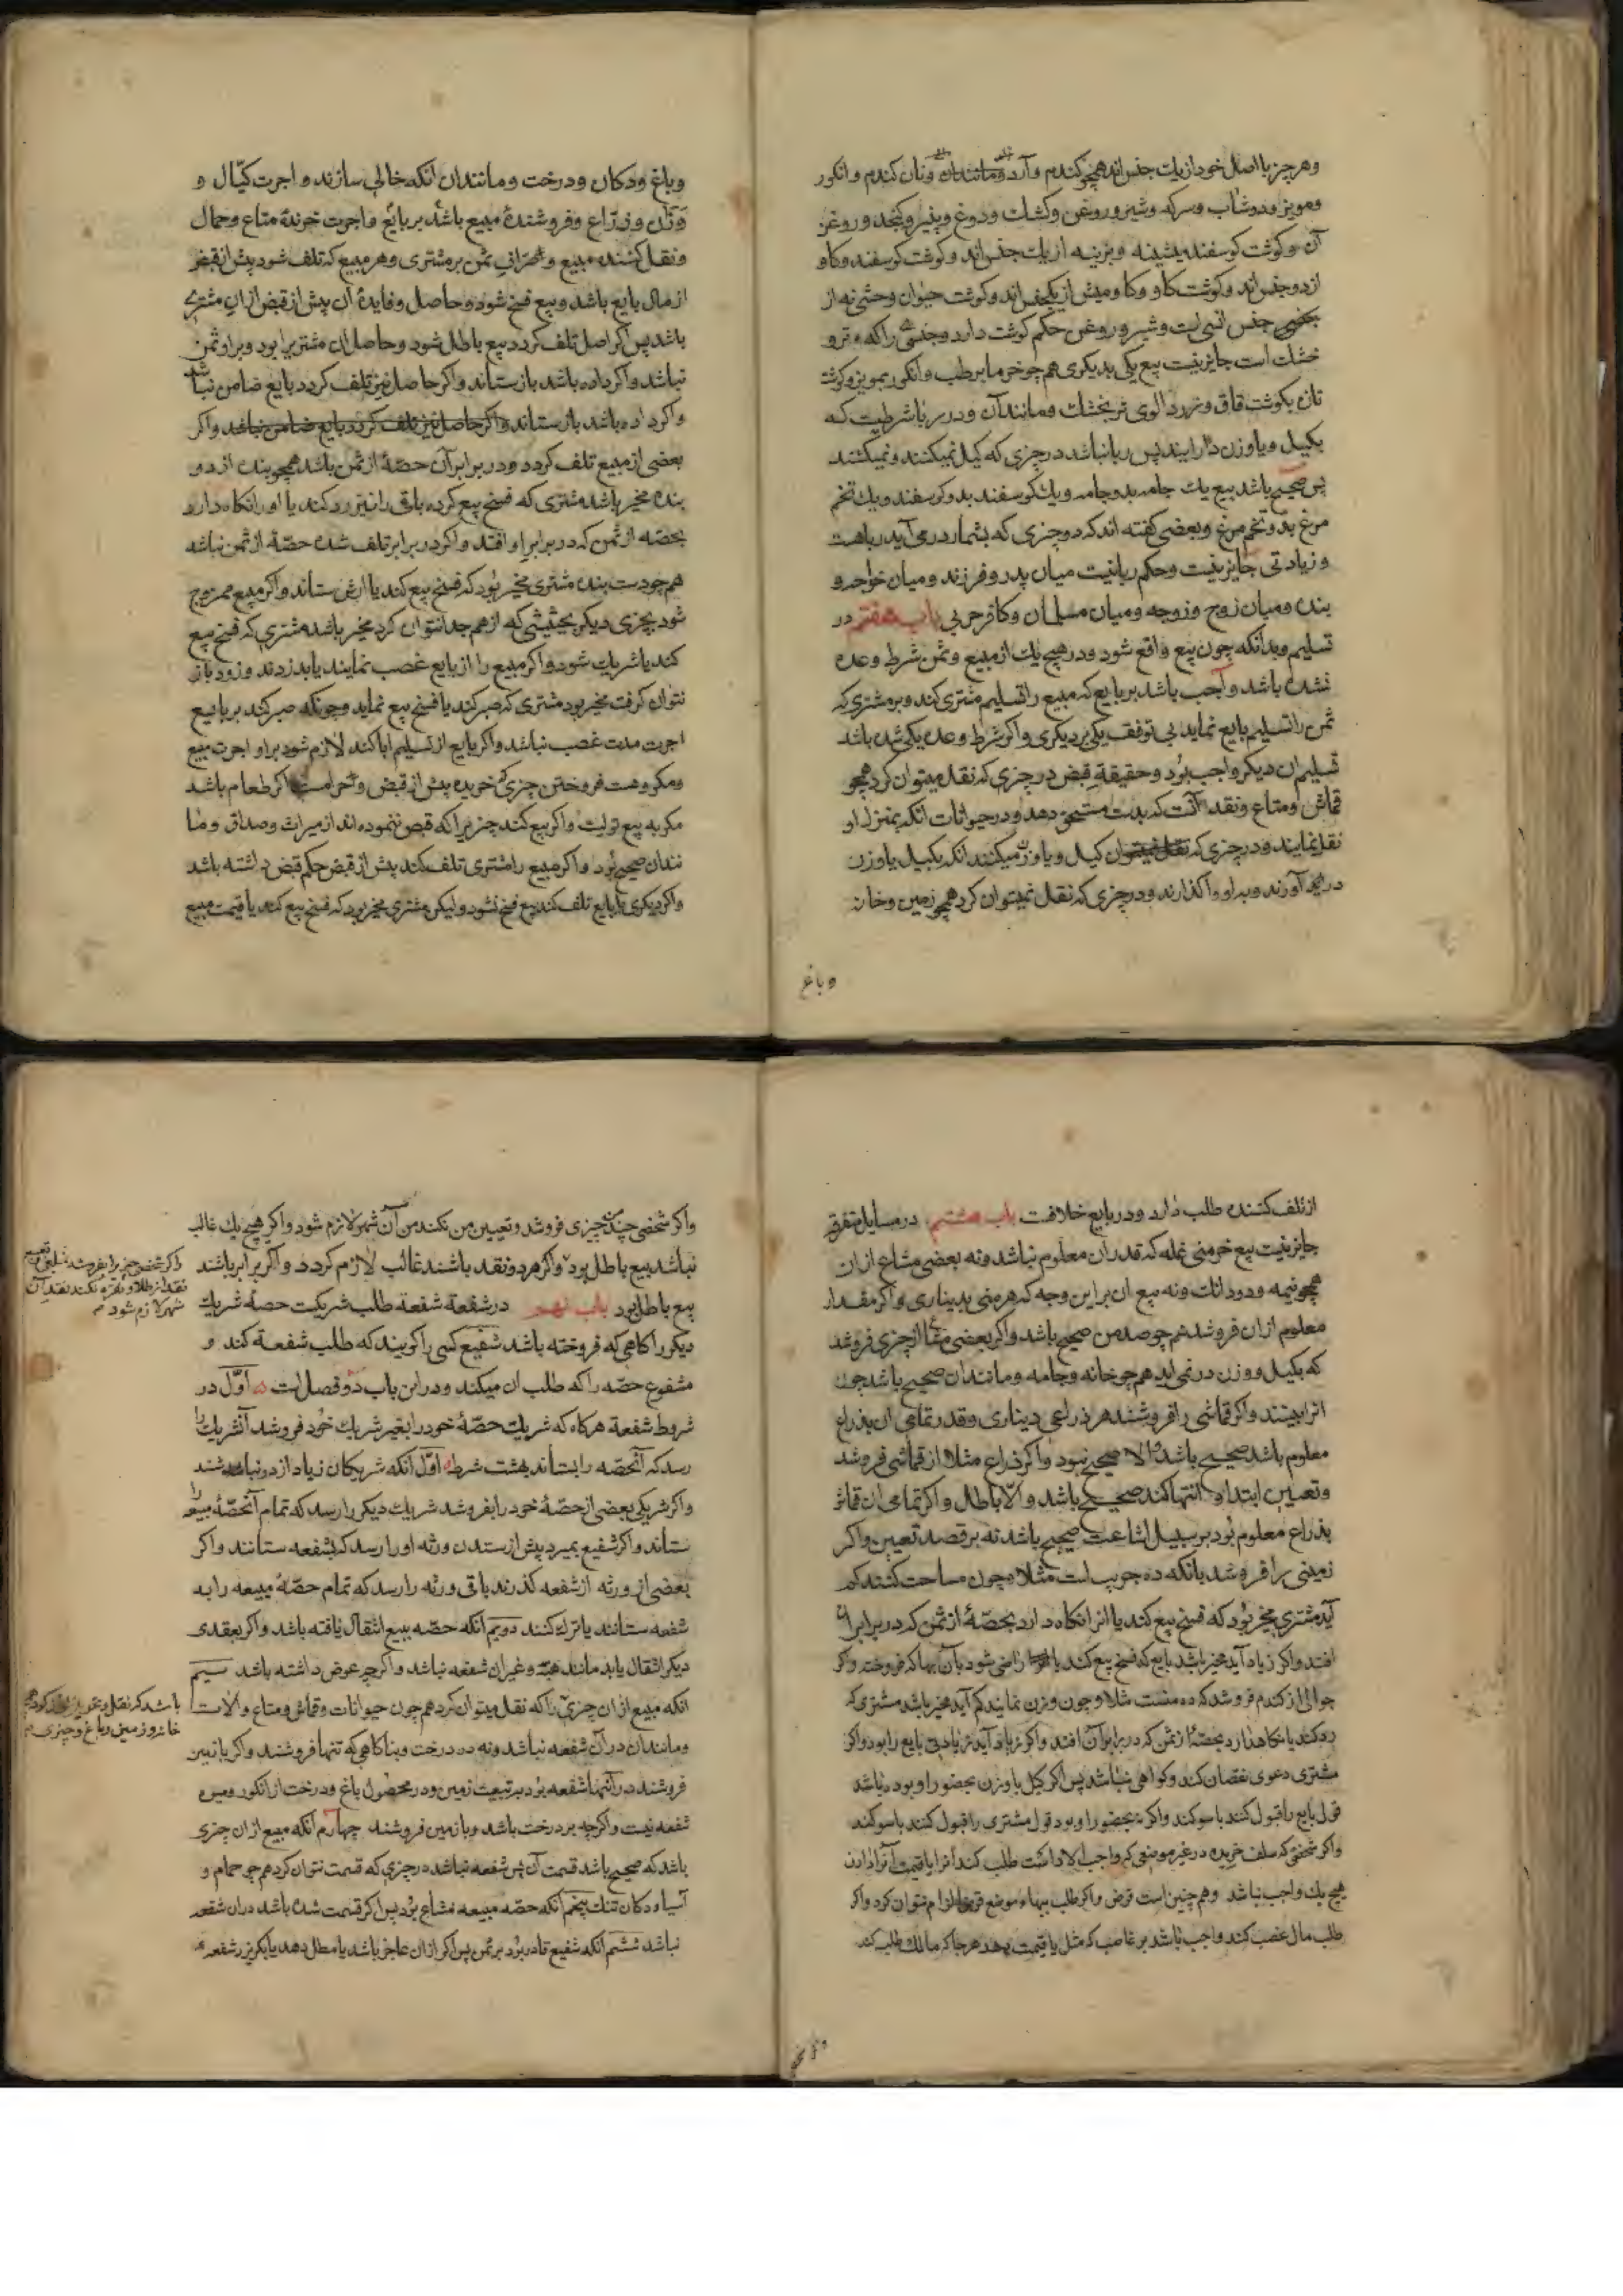 وهر چیز با اصل خود از یك جنس‌اند همچو کندم و آرد و مانند ان و نان کندم و انکور
ومویز و دوشاب وسرکه وشیر و روغن وکشك ودوغ وپنیر وکنجد و روغن
آن وکوشت کوسفند پشینه وبزینه از یك جنس اند وکوشت کوسفند وکاو
از دو جنس اند وکوشت کاو وکاومیش از یکجنس اند وکوشت حیوان وحشی نه از
جنس انسی است وشیر و روغن حکم کوشت دارد وجنسی راکه تر و
خشك است جایز نیست بیع یکی بدیکری هم چو خرما برطب وانکور بمویز وکوشت
تازه بکوشت قاق و زردالوی تر بخشك ومانند آن و در ربا شرطیست که
بکیل ویا وزن در ایند پس ربا نباشد در چیزی که کیل نمیکنند و نمیکشند
پس صحیح باشد بیع یك جامه بدو جامه ویك کوسفند بدو کوسفند ویك تخم
مرغ بدو تخم مرغ وبعضی کفته اند که دو چیزی که بشمار در می آید رباهست
و زیادتی جایز نیست وحکم ربا نیست میان پدر و فرزند ومیان خواجه و
بنده ومیان زوج و زوجه ومیان مسلمان وکافر حربی باب هفتم در
تسلیم وبدانکه چون بیع واقع شود ودر هیچ یك از مبیع وثمن شرط وعده
نشده باشد واجب باشد بر بایع که مبیع را تسلیم مشتری کند وبر مشتری که
ثمن را تسلیم بایع نماید بی توقف یکی بر دیکری واکر شرط وعده یکی شده باشد
تسلیم ان دیکر واجب بود وحقیقة قبض در چیزی که نقل میتوان کرد همچو
قماش ومتاع ونقد آنست که بدست مستحق دهد ودر حیوانات انکه بمنزل او
نقل نمایند ودر چیزی که کیل ویا وزن میکنند انکه بکیل یا وزن
در آورند وبه او واکذارند ودر چیزی که نقل نمیتوان کرد همچو زمین وخانه
وباغ
وباغ ودکان ودرخت ومانندان انکه خالی سازند و اجرت کیّال و
وزّان وزرّاع وفروشندۀ مبیع باشد بر بایع واجرت خرندۀ متاع وحمال
ونقل کننده مبیع وصرّاف ثمن بر مشتری وهر مبیع که تلف شود پیش از قبض
از مال بایع باشد وبیع فسخ شود وحاصل وفایدۀ آن پیش از قبض از ان مشتری
باشد پس اکر اصل تلف کردد بیع باطل شود وحاصل ان مشتریرا بود وبراو ثمن
نباشد واکر داده باشد باز ستاند واکر حاصل نیز تلف کردد بایع ضامن نباشد
واکر داده باشد باز ستاند واکر حاصل نیز تلف کردد بایع ضامن نباشد واکر
بعضی از مبیع تلف کردد ودر برابر آن حصّۀ از ثمن باشد همچو بنده از دو
بنده مخیر باشد مشتری که فسخ بیع کرده باقی را نیز رد کند یا او را نکاه دارد
بحصّه از ثمن که در برابر او افتد واکر در برابر تلف شده حصّۀ از ثمن نباشد
هم چو دست بنده مشتری مخیر بود که فسخ بیع کند یا ارش ستاند واکر مبیع ممزوج
شود بچیزی دیکر بحیثیتی که از هم جدا نتوان کرد مخیر باشد مشتری که فسخ بیع
کند یا شریك شود واکر مبیع را از بایع غصب نمایند یا بدزدند و زود باز
نتوان کرفت مخیر بود مشتری که صبر کند یا فسخ بیع نماید وچونکه صبر کند بر بایع
اجرت مدت غصب نباشد واکر بایع از تسلیم ابا کند لازم شود بر او اجرت مبیع
ومکروهست فروختن چیزی که خریده پیش از قبض وحرامست اکر طعام باشد
مکر به بیع تولیت واکر بیع کند چیزیرا که قبض ننموده اند از میراث وصداق وما
نندان صحیح بود واکر مبیع را مشتری تلف کند پیش از قبض حکم قبض داشته باشد
واکر دیکری یا بایع تلف کند بیع فسخ نشود ولیکن مشتری مخیر بود که فسخ بیع کند یا قیمت مبیع
از تلف کننده طلب دارد ودر بایع خلافست باب هشتم در مسایل متفرقه
جایز نیست بیع خرمنی غله که قدر ان معلوم نباشد ونه بعضی مشاع از ان
همچو نیمه ودودانك ونه بیع ان بر این وجه که هر منی بدیناری واکر مقدار
معلوم از ان فروشد هم چو صد من صحیح باشد واکر بعضی مشاع از چیزی فروشد
که بکیل ووزن در نمی اید هم چو خانه وجامه ومانندان صحیح باشد چون
انرا بینند واکر قماشی را فروشند هر ذراعی دیناری وقدر تمامی ان بذراع
معلوم باشد صحیح باشد والا صحیح نبود واکر ذراع مثلا از قماشی فروشد
وتعیین ابتدا وانتها کند صحیح باشد والّا باطل واکر تمامی ان قماش
بذراع معلوم بود بر سبیل اشاعت صحیح باشد نه بر قصد تعیین واکر
زمینی را فروشد بانکه ده جریب است مثلا وچون مساحت کنند کم
آید مشتری مخیر بود که فسخ بیع کند یا انرا نکاه دارد بحصّۀ از ثمن که در برابر ان
افتد واکر زیاد آید مخیر باشد بایع که فسخ بیع کند یا راضی شود بآن بها که فروخته واکر
جوالی از کندم فروشد که ده منست مثلا وچون وزن نمایند کم آید مخیر باشد مشتری که
رد کند یا نکاهدارد بحصّۀ از ثمن که در برابر آن افتد واکر زیاد آید زیادتی بایع را بود واکر
مشتری دعوی نقصان کند وکواهی نباشد پس اکر کیل یا وزن بحضور او بوده باشد
قول بایع را قبول کنند باسوکند واکر نه بحضور او بود قول مشتری را قبول کنند باسوکند
واکر شخصی که سلف خریده در غیر موضعی که واجب الاداست طلب کند انرا یا قیمت آنرا دادن
هیچ یك واجب نباشد وهم چنین است قرض واکر طلب بهاء موضع قرض الزام نتوان کرد واکر
طلب مال غصب کند واجب باشد بر غاصب که مثل یا قیمت بدهد هر جا که مالك طلب کند
واکر شخصی چندمن چیزی فروشد وتعیین من نکند من آن شهر لازم شود واکر هیچ یك غالب
نباشد بیع باطل بود واکر هر دو نقد باشند غالب لازم کردد واکر برابر باشند
بیع باطل بود باب نهم در شفعة شفعة طلب شریکست حصۀ شریك
دیکر را کاهی که فروخته باشد شفیع کسی را کویند که طلب شفعة کند و
مشفوع حصّه را که طلب ان میکند ودر این باب دو فصل است اوّل در
شروط شفعة هرکاه که شریك حصّۀ خود را بغیر شریك خود فروشد آنشریك را
رسد که آنحصّه را بستاند بهشت شرط اوّل آنکه شریکان زیاد از دو نباشند
واکر شریکی بعضی از حصّۀ خود را بفروشد شریك دیکر را رسد که تمام آنحصّۀ مبیعه را
ستاند واکر شفیع بمیرد پیش از ستدن ورثه او را رسد که بشفعه ستانند واکر
بعضی از ورثه از شفعه کذرند باقی ورثه را رسد که تمام حصّۀ مبیعه را به
شفعه ستانند یا ترك کنند دویم انکه حصّه ببیع انتقال یافته باشد واکر بعقدی
دیکر انتقال یابد مانند هبه وغیر ان شفعه نباشد واکرچه عوض داشته باشد سیم
انکه مبیع از ان چیزی را که نقل میتوان کرد هم چون حیوانات وقماش ومتاع والات
ومانندان در آن شفعه نباشد ونه در درخت وبنا کاهی که تنها فروشند واکر با زمین
فروشند در آنها شفعه بود بر تبعیت زمین ودر محصول باغ ودرخت از انکور ومیوه
شفعه نیست واکرچه بر درخت باشد وبا زمین فروشند چهارم آنکه مبیع از ان چیزی
باشد که صحیح باشد قسمت آن پس شفعه نباشد در چیزی که قسمت نتوان کرد هم چو حمام و
آسیا ودکان تنك پنجم آنکه حصّه مبیعه مشاع بود پس اکر قسمت شده باشد دران شفعه
نباشد ششم آنکه شفیع قادر بود بر ثمن پس اکر از ان عاجز باشد یا مطل دهد یا بکریزد شفعه
واکر شخصی چیزی را بفروشد تعیین
نقد از طلا ونقره نکند نقد آن
شهر لازم شود
باشد که نقل
خانه وزمین وباغ وچیزی